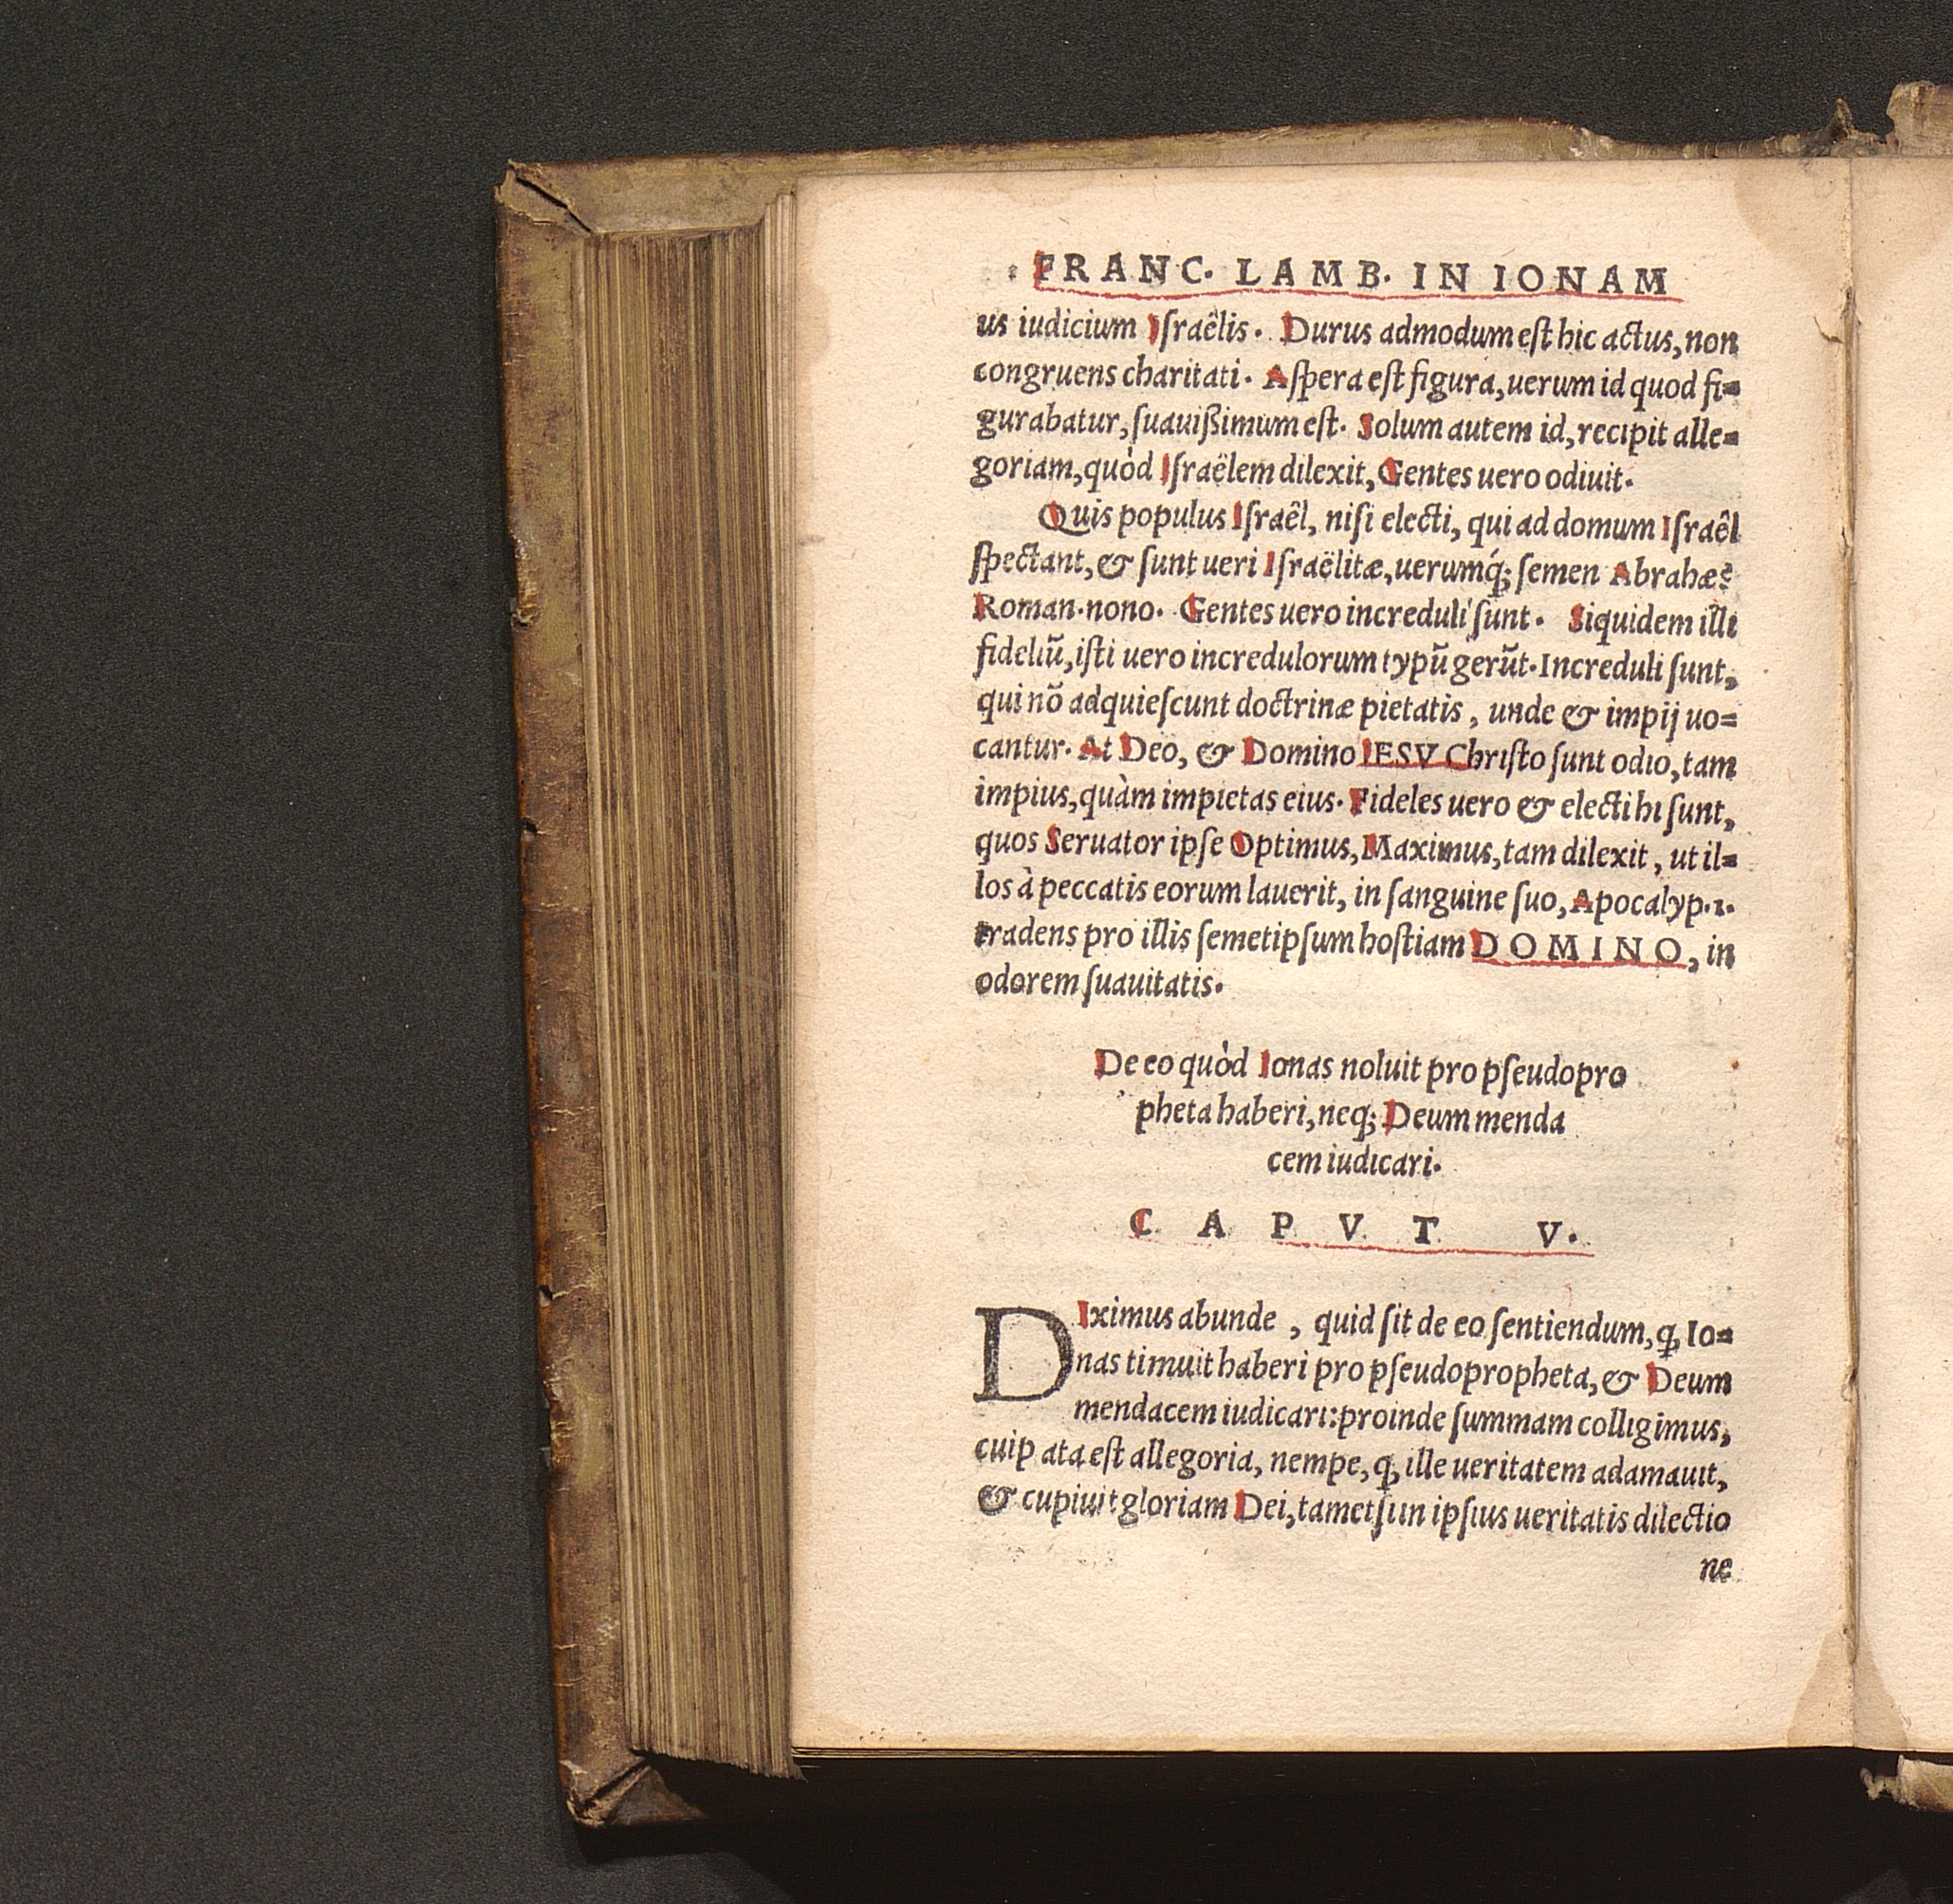 FRANC. LAMB. IN IONAM
us iudicium Iſraêlis. Durus admodum eſt hic actus, non
congruens charitati. Aſpera eſt figura, uerum id quod fi=
gurabatur, ſuauißimum eſt. Solum autem id, recipit alle=
goriam, quòd Iſraëlem dilexit, Gentes uero odiuit.
Quis populus Iſraêl, niſi electi, qui ad domum Iſraêl
ſpectant, & ſunt ueri Iſraëlitæ, uerumq́; ſemen Abrahæ?
Roman. nono. Gentes uero increduli ſunt. Siquidem illi
fideliũ, iſti uero incredulorum typũ gerũt. Increduli ſunt,
qui nõ adquieſcunt doctrinæ pietatis, unde & impij uo=
cantur. At Deo, & Domino IESV Chriſto ſunt odio, tam
impius, quàm impietas eius. Fideles uero & electi hi ſunt,
quos Seruator ipſe Optimus, Maximus, tam dilexit, ut il=
los à peccatis eorum lauerit, in ſanguine ſuo, Apocalyp. 1.
tradens pro illis ſemetipſum hoſtiam DOMINO, in
odorem ſuauitatis.
De eo quòd Ionas noluit pro pſeudopro
pheta haberi, neq; Deum menda
cem iudicari.
CAPVT V.
DIximus abunde, quid ſit de eo ſentiendum, ꝙ Io=
nas timuit haberi pro pſeudopropheta, & Deum
mendacem iudicari: proinde ſummam colligimus,
cuip ata eſt allegoria, nempe, ꝙ ille ueritatem adamauit,
& cupiuit gloriam Dei, tametſi in ipſius ueritatis dilectio
ne